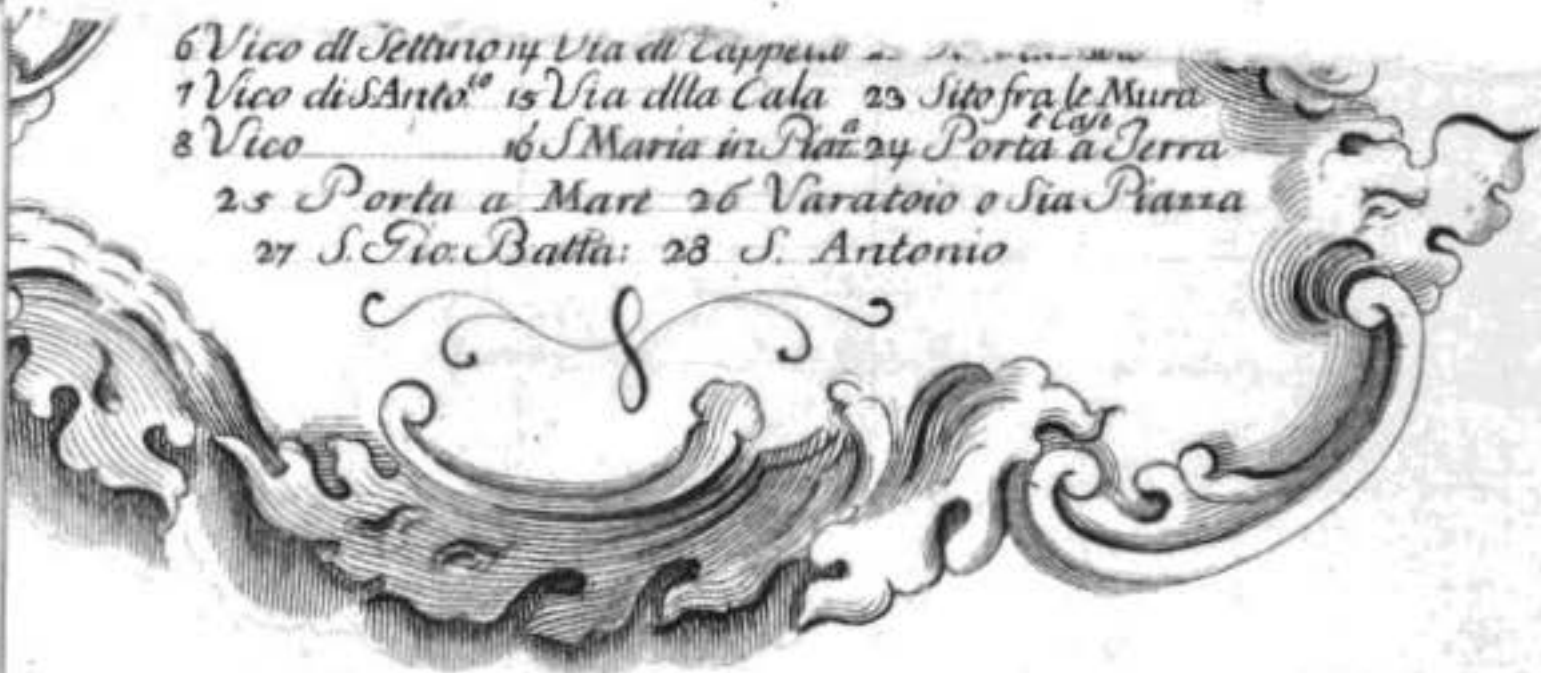 6 Vico dl Setturo 14 Via dl Cappero
7 Vico di S Anto.to 15 Via dlla Cala 23 Sito fra le Mura e Case
8 Vico 16 S Maria in Piaz.a 24 Porta a Terra
25 Porta a Mare 26 Varatoio o sia Piazza
27 S. Gio: Batta: 28 S. Antonio